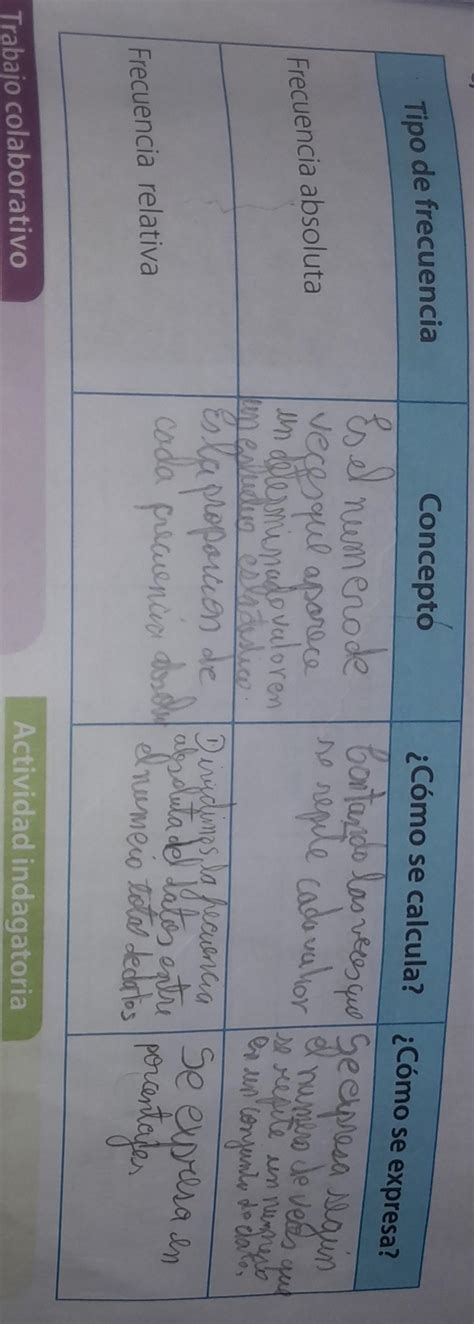 Tipo de frecuencia
Concepto
¿Cómo se calcula?
¿Cómo se expresa?
Frecuencia absoluta
Es el numero de
veces que aparece
un determinado valor en
un estudio estadistico.
Contando las veces que
se repite cada valor
Se expresa según
el numero de veces que
se repite un numero
en un conjunto de datos.
Frecuencia relativa
Es la proporcion de
cada frecuencia
Dividimos la frecuencia
absoluta del datos entre
el numero total de datos
Se expresa en
porcentajes
Trabajo colaborativo
Actividad indagatoria